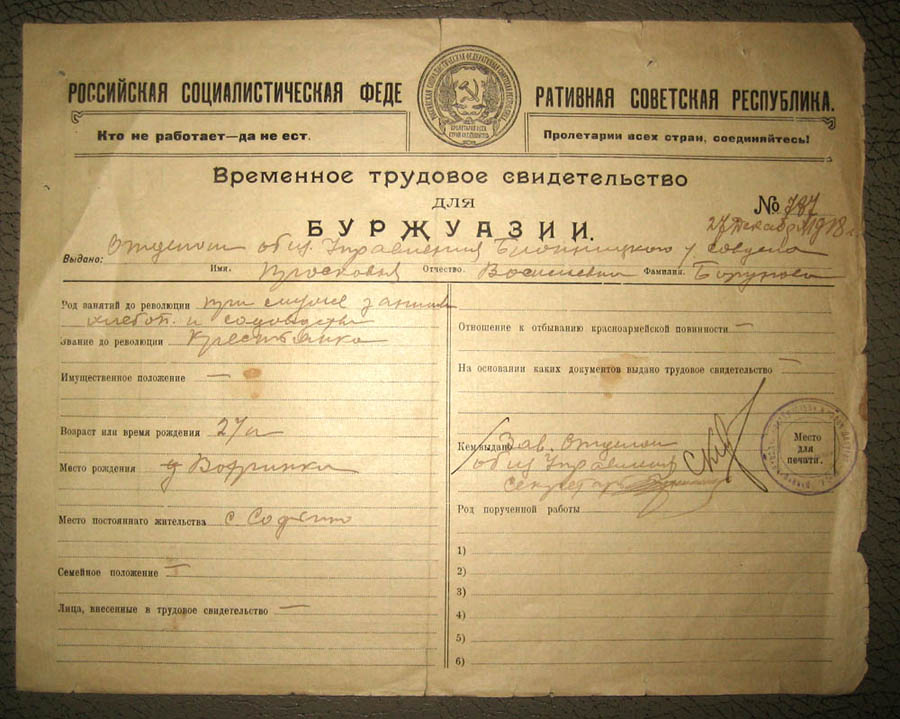 РОССИЙСКАЯ СОЦИАЛИСТИЧЕСКАЯ ФЕДЕ РАТИВНАЯ СОВЕТСКАЯ РЕСПУБЛИКА.
Кто не работает—да не ест. Пролетарии всех стран, соединяйтесь!
Временное трудовое свидетельство
для
БУРЖУАЗИИ.
№ 787
27 Декабря 1918 г.
Выдано: Отделом общ. Управления
Имя. Отчество. Васильевна Фамилия.
Род занятий до революции при
хлебоп. и
Звание до революции Крестьянка
Имущественное положение —
Возраст или время рождения 27 л
Место рождения д
Место постоянного жительства с
Семейное положение —
Лица, внесенные в трудовое свидетельство —
Отношение к отбыванию красноармейской повинности —
На основании каких документов выдано трудовое свидетельство —
Кем выдано Зав. Отделом
общ Управления
секретарь
Место
для
печати.
Род порученной работы
1)
2)
3)
4)
5)
6)